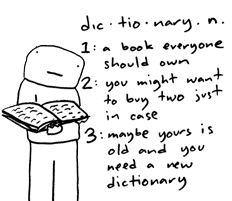 dic·tio·nary. n.
1: a book everyone
should own
2: you might want
to buy two just
in case
3: maybe yours is
old and you
need a new
dictionary